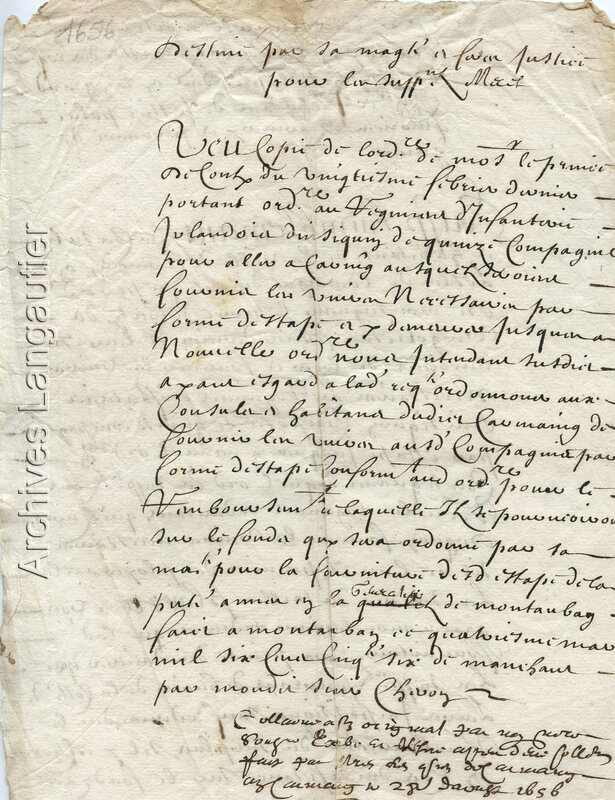 1656
destine par sa mag.te et ferez justice
pour les supp.ns
Veu Copie de lord.re de mons.r le prince
de Conty du vingtiesme febvrier dernier
portant ord.re au Regiment d'Infanterie
Irlandois de quinze Compagnies
pour aller a Carm.g ausquels seroient
fournis les vivres Necessaires par
forme destape et y demeurer jusques a
Nouvelle ord.re nous Intendant susdit
ayant esgard a lad. req.te ordonnons aux
Consuls et habitans dudict Carmaing de
fournir les vivres ausd. Compagnies par
forme destape conform.t aud. ord.re pour le
Remboursem.t de laquelle Ils se pourvoiront
sur le fonds quy sera ordonné par sa
ma.té pour la fourniture desd. estape de la
p.nte annee en la generalité de montauban
faict a montauban ce quatriesme mars
mil six Cens Cinq.te six de
par mondit sieur
Collationné a son original par moy
fait par les de Carmaing
a Carmaing le daoust 1656
Archives Langautier